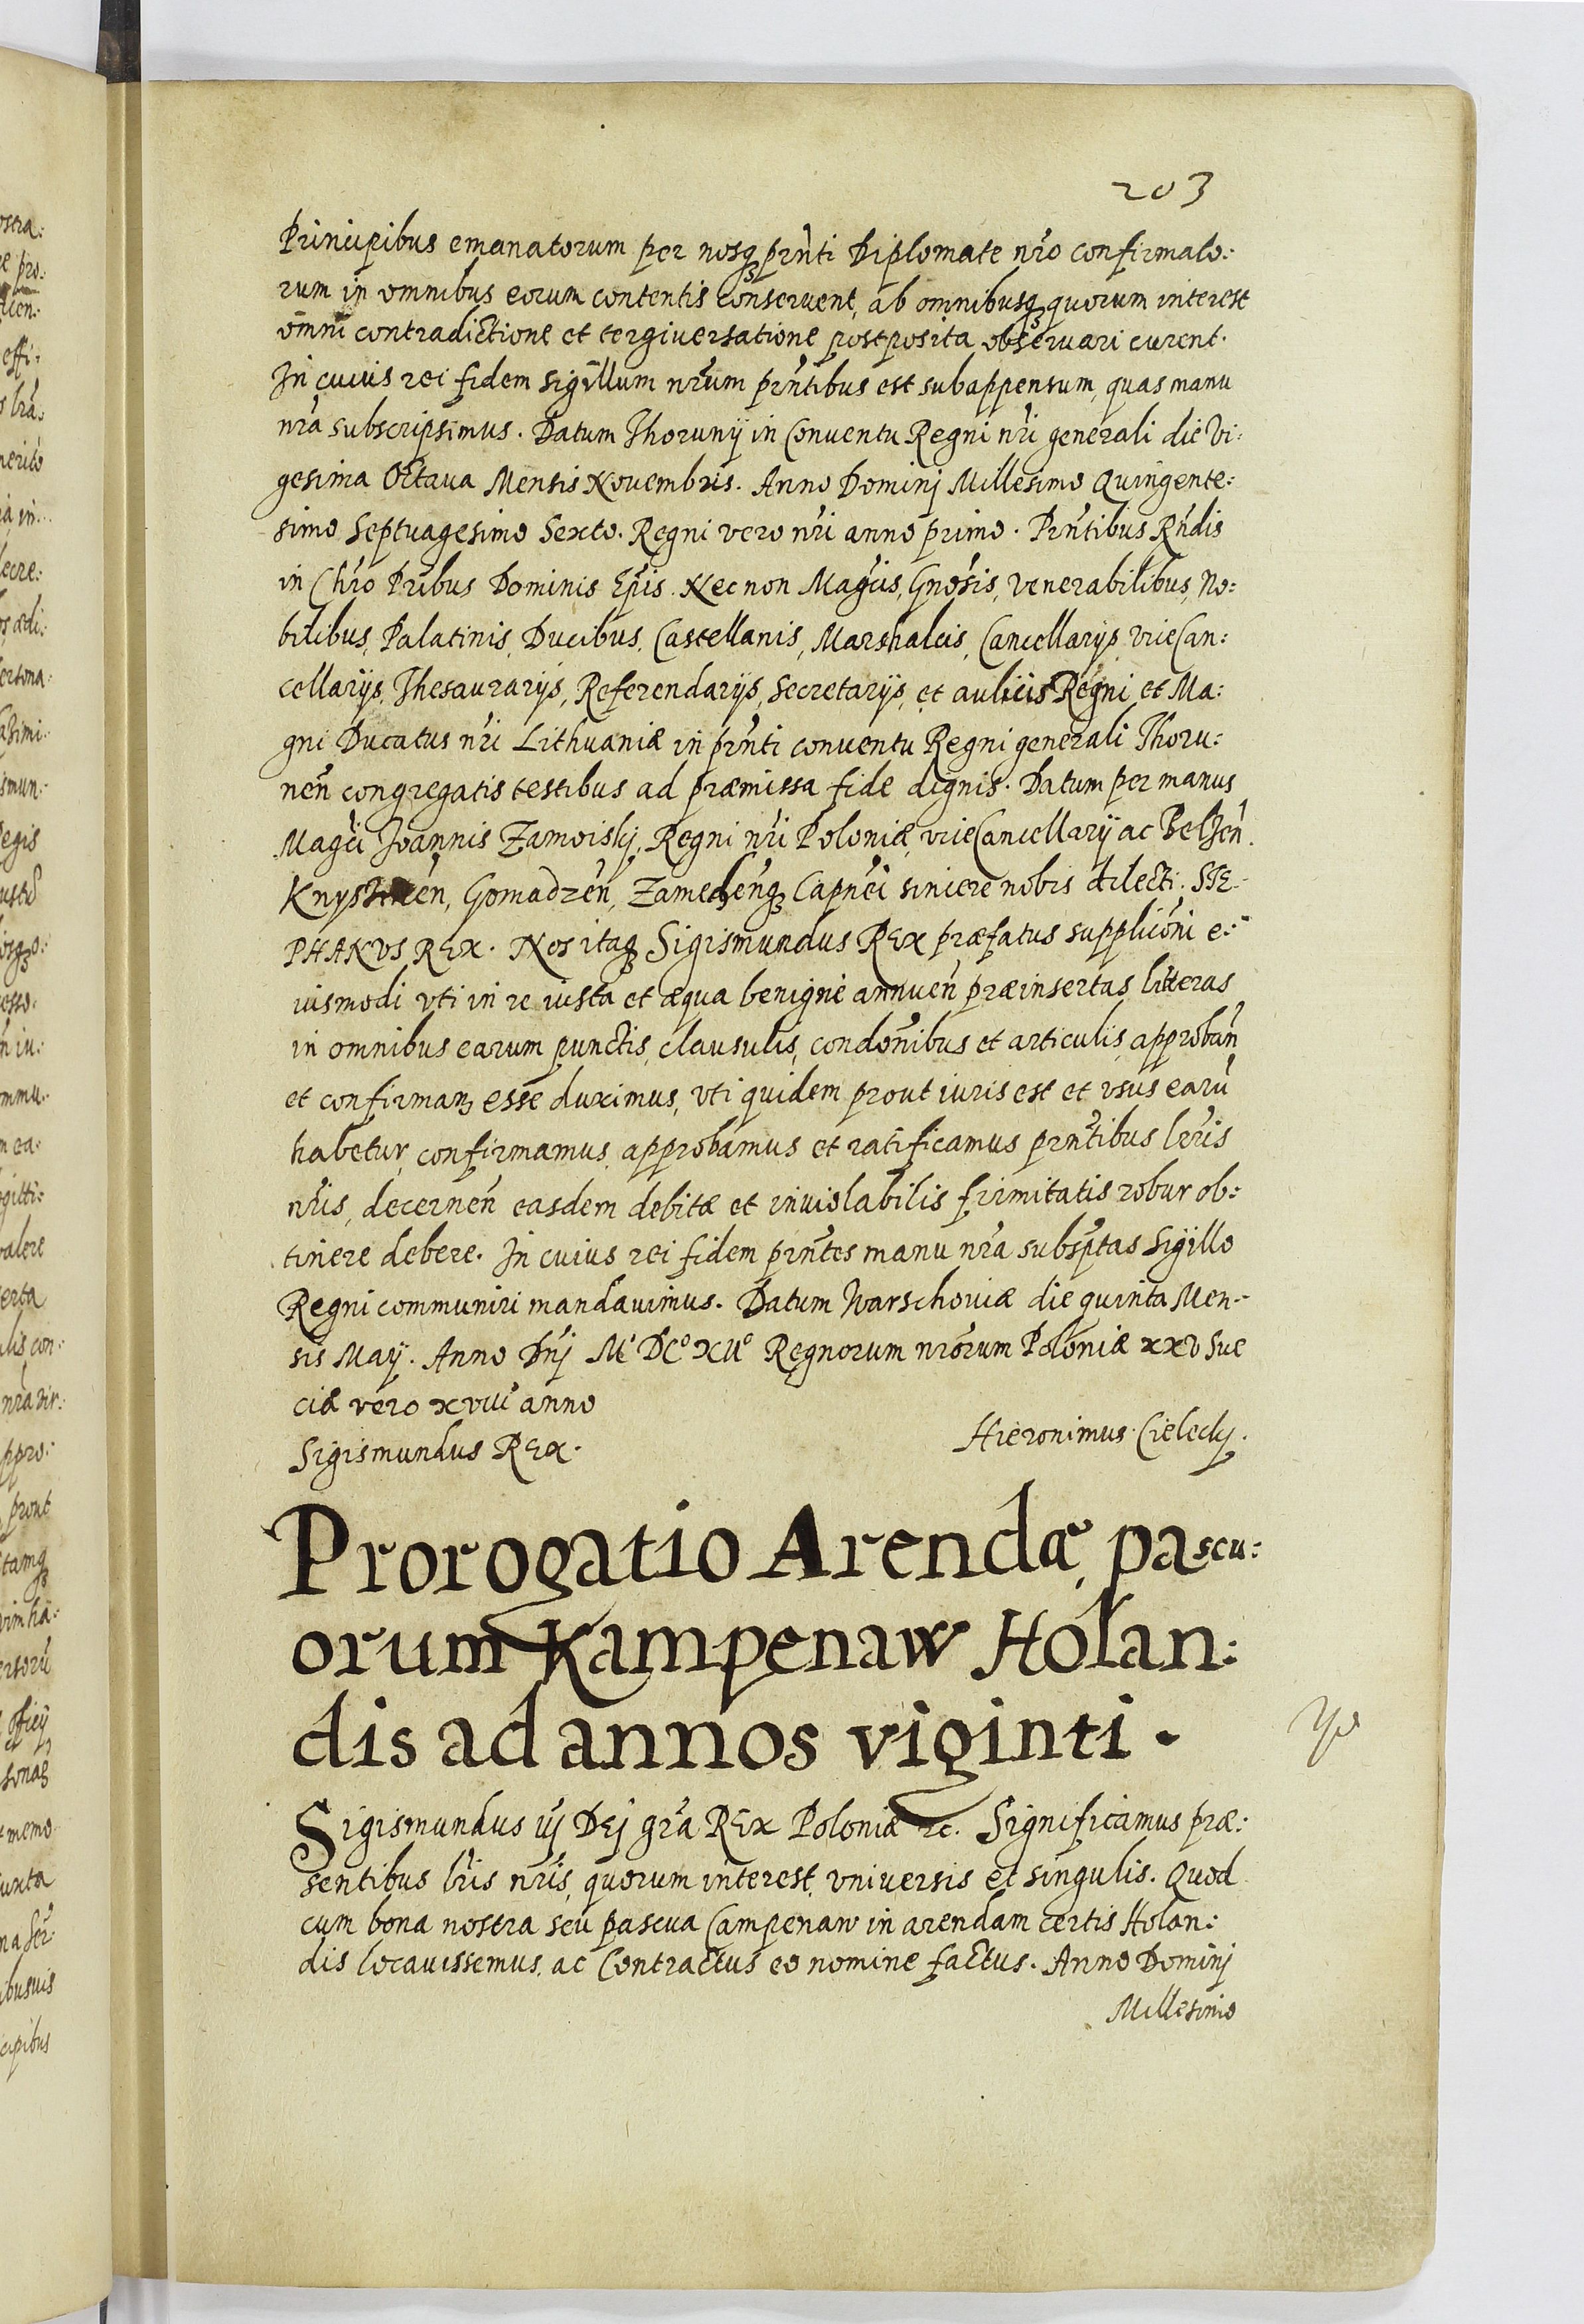 203
Principibus emanatorum per nosq prn̄ti Diplomate nr̄o confirmato:
rum in omnibus eorum contentis conseruent, ab omnibusq quorum interest
omni contradictione et tergiuersatione postposita obseruari curent.
In cuius rei fidem sigillum nr̄um prn̄tibus est subappensum, quas manu
nr̄a subscripsimus. Datum Thorunÿ in Conuentu Regni nr̄i generali die Vi:
gesima Octaua Mensis Nouembris. Anno Dominj Millesimo Quingente:
simo Septuagesimo Sexto. Regni vero nr̄i anno primo. Prn̄tibus Rn̄dis
in Chr̄o Pr̄ibus Dominis Ep̄is. Nec non Mag̃cis, Gnõsis, Venerabilibus, No:
bilibus, Palatinis, Ducibus, Castellanis, Marshalcis, Cancellarÿs, viceCan:
cellarÿs, Thesaurarÿs, Referendarÿs, Secretarÿs, et aulicis Regni et Ma:
gni Ducatus nr̄i Lithuaniæ in prn̄ti conuentu Regni generali Thoru:
nen̄ congregatis testibus ad præmissa fide dignis. Datum per manus
Mag̃ci Joannis Zamoiskj, Regni nr̄i Poloniæ, viceCancellarÿ ac Belzen̄.
Gomadzen̄, Zamechenq̄ Capn̄ei sincere nobis dilecti. STE:
PHANVS REX. Nos itaq Sigismundus REX præfatus supplicōni e:
iusmodi vti in re iusta et æqua benigne annuen̄ præinsertas literas
in omnibus earum punctis, clausulis, condōnibus et articulis, approban̄
et confirman esse duximus, vti quidem prout iuris est et vsus earū
habetur, confirmamus, approbamus et ratificamus prn̄tibus lr̄is
nr̄is, decernen̄ easdem debitæ et inuiolabilis firmitatis robur ob:
tinere debere. In cuius rei fidem prn̄tes manu nr̄a subsp̄tas Sigillo
Regni communiri mandauimus. Datum Warschouiæ die quinta Men:
sis Maÿ. Anno Dn̄j Mº DCº XIIº Regnorum nr̄orum Poloniæ xxv Sue
ciæ vero xviii anno
Sigismundus REX.
Hieronimus Cieleckj.
Prorogatio Arendæ pascu:
orum Kampenaw Holan:
dis ad annos viginti.
Sigismundus iij DEj gr̄a REX Poloniæ &c. Significamus præ:
sentibus lr̄is nr̄is, quorum interest, vniuersis et singulis. Quod
cum bona nostra seu pascua Campenaw in arendam certis Holan:
dis locauissemus, ac Contractus eo nomine factus. Anno Dominj
Millesimo